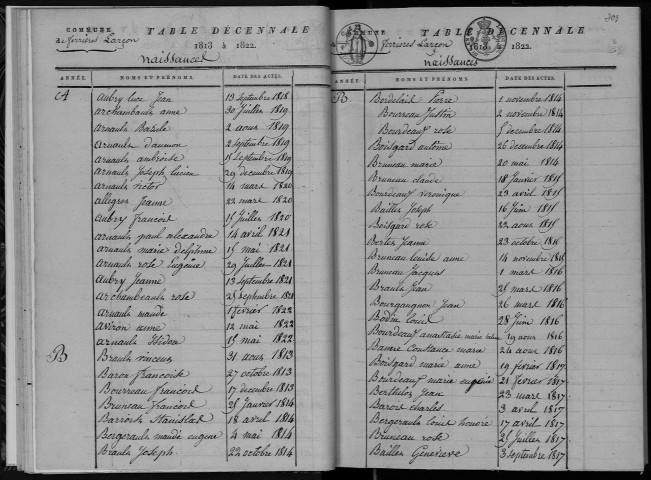 COMMUNE
de ferrières Larçon
TABLE DÉCENNALE
1813 à 1822.
naissances
ANNÉE. NOMS ET PRÉNOMS. DATE DES ACTES.
A Aubry luce Jean 13 septembre 1818
archambault anne 30 Juillet 1819
arnault Basile 2 aout 1819
arnault 2 septembre 1819
arnault ambroise 5 septembre 1819
arnault Joseph lucien 29 decembre 1819
arnault victor 14 mars 1820
allegret Jeanne 22 mars 1820
Aubry francois 15 Juillet 1820
arnault paul alexandre 14 avril 1821
arnault marie delphine 15 mai 1821
arnault rose Eugénie 29 Juillet 1821
Aubry Jeanne 13 septembre 1821
archambault rose 25 septembre 1821
arnault 17 fevrier 1822
aviron anne 12 mai 1822
arnault 15 mai 1822
B Brault vincent 31 aout 1813
Baron francoise 27 octobre 1813
Bourreau francois 17 decembre 1813
Bruneau francois 25 Janvier 1814
Stanislas 18 avril 1814
Bergerault eugene 4 mai 1814
Brault Joseph 22 octobre 1814
COMMUNE
ferrières Larçon
TABLE DÉCENNALE
1813 à 1822.
naissances
ANNÉE. NOMS ET PRÉNOMS. DATE DES ACTES.
B Pierre 1 novembre 1814
Bourreau Justin 2 novembre 1814
Bourdeaux rose 5 decembre 1814
Boisgard antoine 26 decembre 1814
Bruneau marie 20 mai 1814
Bruneau claude 18 Janvier 1815
Bourdeaux veronique 23 avril 1815
Baillet Joseph 16 Juin 1815
Boisgard rose 22 aout 1815
Berlot Jeanne 23 octobre 1815
Bruneau louise anne 14 novembre 1815
Bruneau Jacques 1 mars 1816
Brault Jean 25 mars 1816
Bourguignon Jean 26 mars 1816
Bodin louis 28 Juin 1816
Bourdeaux anastasie marie 19 aout 1816
Constance marie 24 aout 1816
Boisgard marie anne 19 fevrier 1817
Bourdeaux marie eugenie 21 fevrier 1817
Berthelot Jean 23 mars 1817
Barot charles 3 avril 1817
Bergerault louis honoré 17 avril 1817
Bruneau rose 25 Juillet 1817
Baillet Genevieve 3 septembre 1817